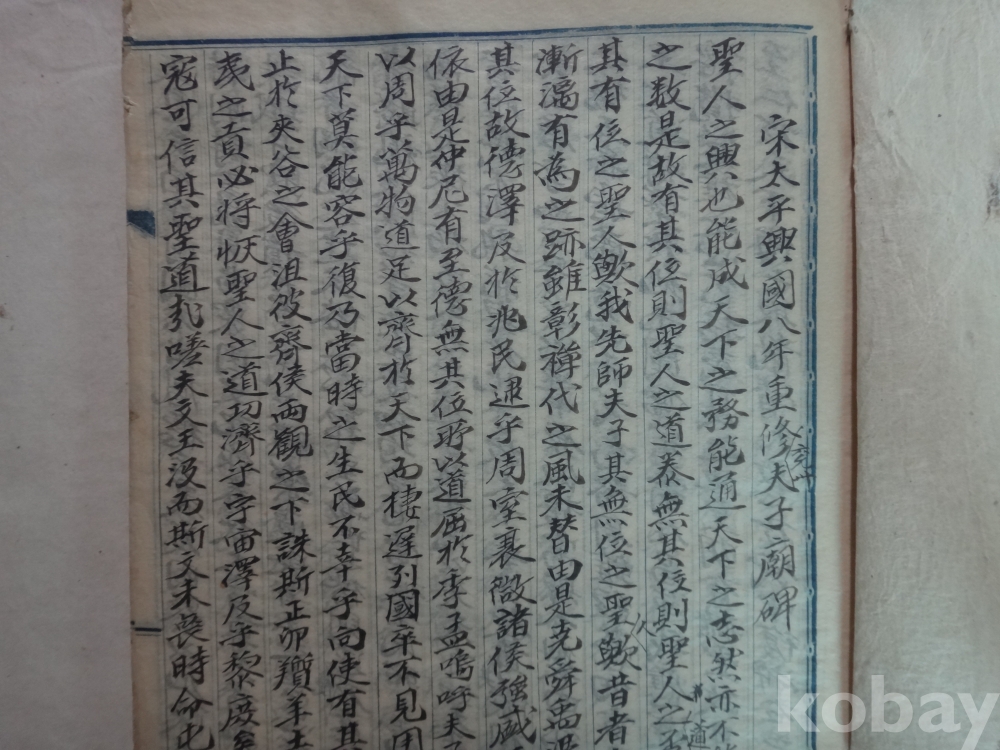 宋太平興國八年重修夫子廟碑
聖人之興也能成天下之務能通天下之志然亦不
之数是故有其位則聖人之道泰無其位則聖人之否
其有位之聖人歟我先師夫子其無位之聖人歟昔者
漸漓有為之跡雖彰禅代之風未替由是尭舜禹湯
其位故德澤及於兆民逮乎周室衰微諸侯強盛
依由是仲尼有至德無其位所以道屈於季孟嗚呼夫子
以周乎萬物道足以齊於天下而棲遲列國卒不見用
天下莫能容乎復乃當時之生民不幸乎向使有其
止於夾谷之會沮彼齊侯兩觀之下誅斯正卯羵羊土
夷之貢必将恢聖人之道功濟乎宇宙澤及乎黎庶矣
寇可信其聖道哉嗟夫文王没而斯文未喪時命屯
kobay